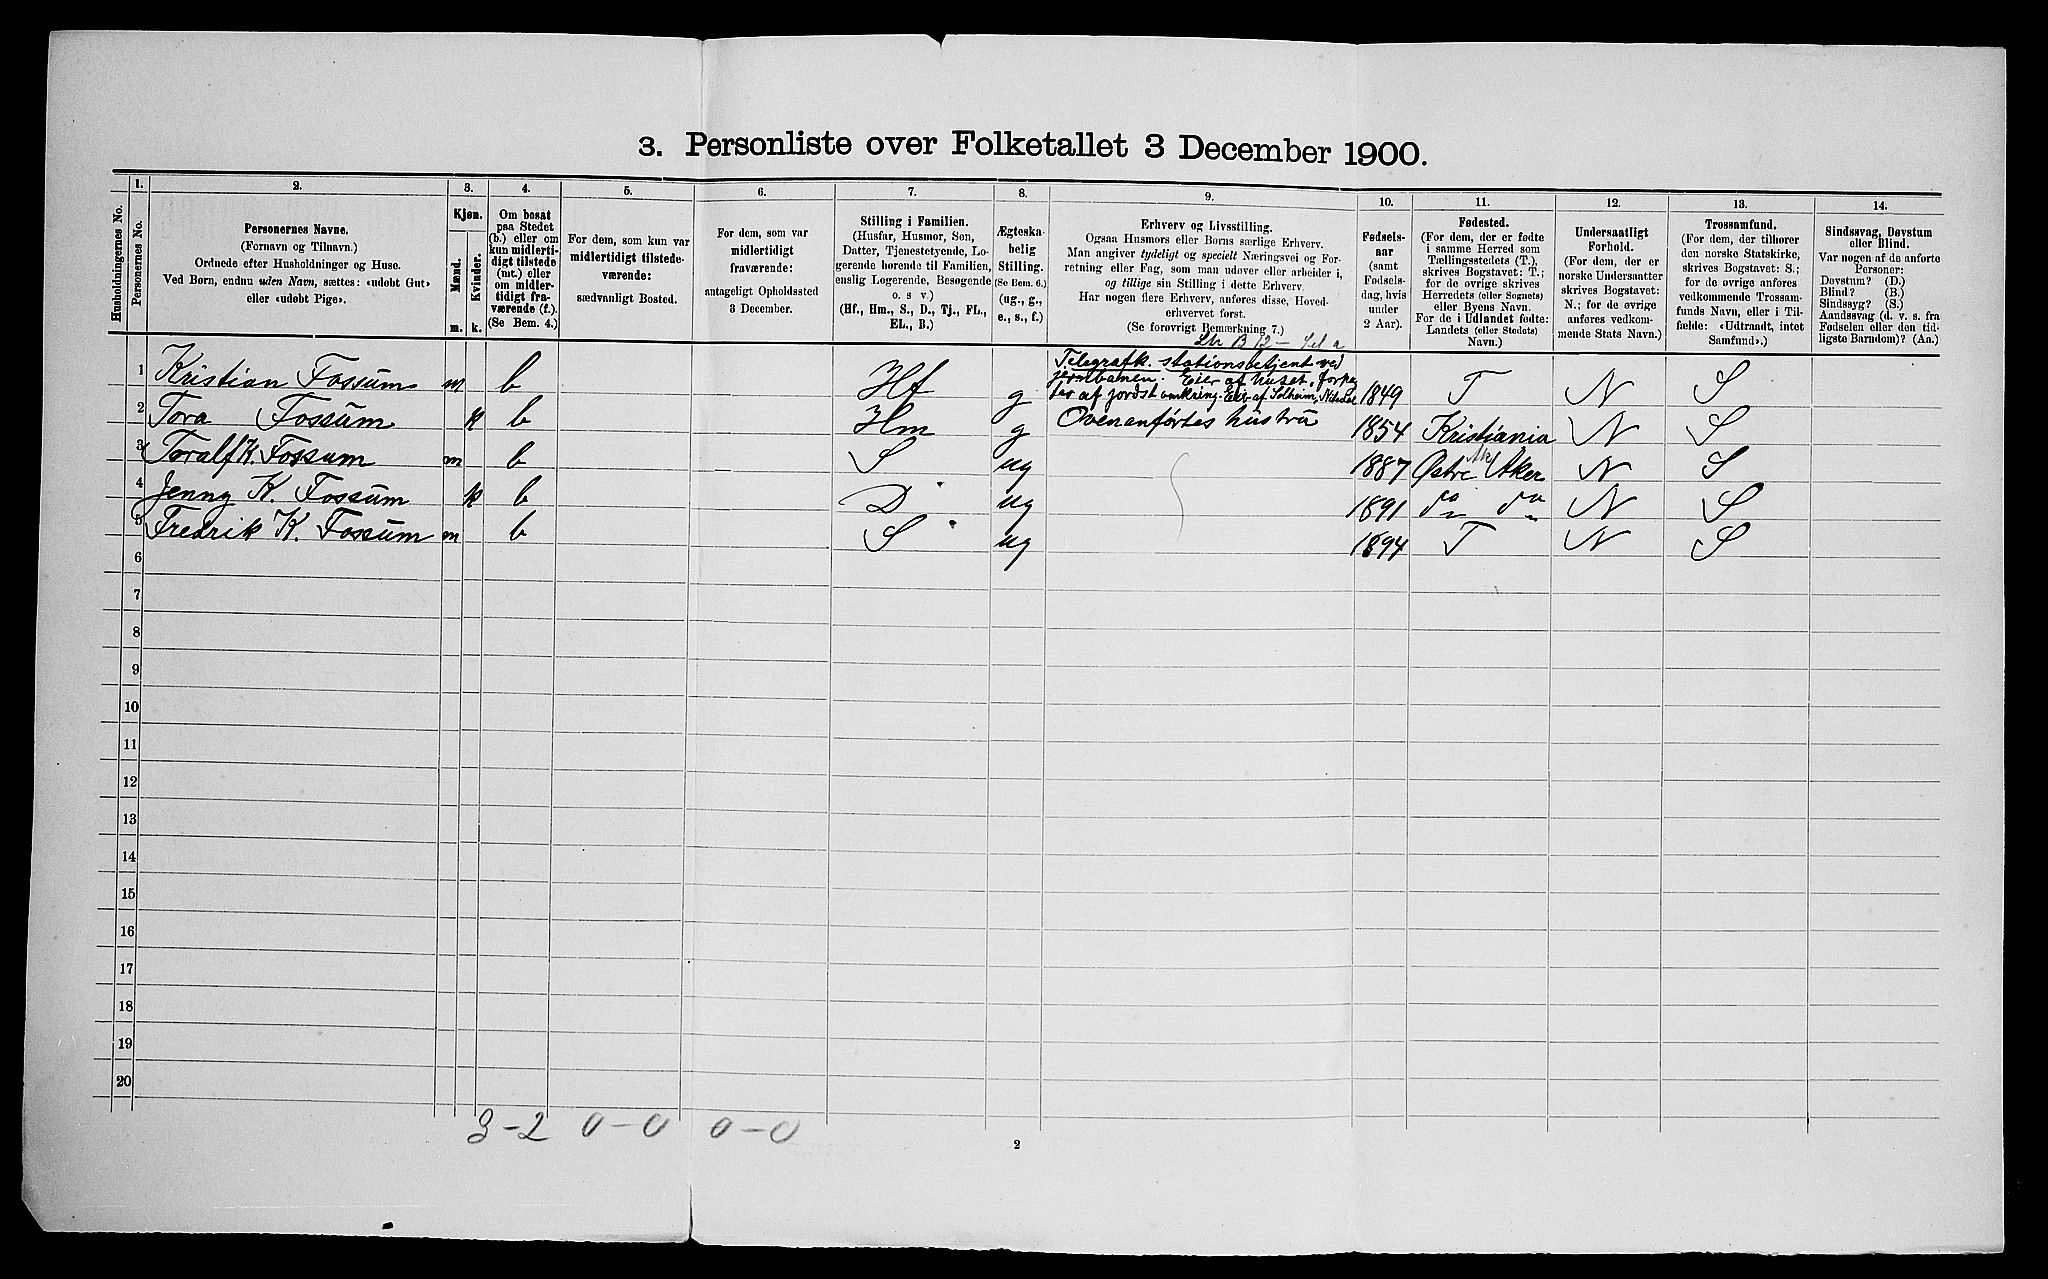 3. Personliste over Folketallet 3 December 1900.
1. 2. 3. 4. 5. 6. 7. 8. 9. 10. 11. 12. 13. 14.
Husholdningernes No.
Personernes No.
Personernes Navne.
(Fornavn og Tilnavn.)
Ordnede efter Husholdninger og Huse.
Ved Børn, endnu uden Navn, sættes: «udøbt Gut»
eller «udøbt Pige».
Kjøn.
Mænd.
Kvinder.
m. k.
Om bosat
paa Stedet
(b.) eller om
kun midlerti-
digt tilstede
(mt.) eller
om midler-
tidigt fra-
værende (f.).
(Se Bem. 4.)
For dem, som kun var
midlertidigt tilstede-
værende:
sædvanligt Bosted.
For dem, som var
midlertidigt
fraværende:
antageligt Opholdssted
3 December.
Stilling i Familien.
(Husfar, Husmor, Søn,
Datter, Tjenestetyende, Lo-
gerende hørende til Familien,
enslig Logerende, Besøgende
o. s v.)
(Hf., Hm., S., D., Tj., FL.,
EL., B.)
Ægteska-
belig
Stilling.
(Se Bem. 6.)
(ug., g.,
e., s., f.)
Erhverv og Livsstilling.
Ogsaa Husmors eller Børns særlige Erhverv.
Man angiver tydeligt og specielt Næringsvei og For-
retning eller Fag, som man udøver eller arbeider i,
og tillige sin Stilling i dette Erhverv.
Har nogen flere Erhverv, anføres disse, Hoved-
erhvervet først.
(Se forøvrigt Bemærkning 7.)
Fødsels-
aar
(samt
Fødsels-
dag, hvis
under
2 Aar).
Fødested.
(For dem, der er fødte
i samme Herred som
Tællingsstedets (T.),
skrives Bogstavet: T.;
for de øvrige skrives
Herredets (eller Sognets)
eller Byens Navn.
For de i Udlandet fødte:
Landets (eller Stedets)
Navn.)
Undersaatligt
Forhold.
(For dem, der er
norske Undersaatter
skrives Bogstavet:
N.; for de øvrige
anføres vedkom-
mende Stats Navn.)
Trossamfund.
(For dem, der tilhører
den norske Statskirke,
skrives Bogstavet: S.;
for de øvrige anføres
vedkommende Trossam-
funds Navn, eller i Til-
fælde: «Udtraadt, intet
Samfund».)
Sindssvag, Døvstum
eller Blind.
Var nogen af de anførte
Personer:
Døvstum? (D.)
Blind? (B.)
Sindssyg? (S.)
Aandssvag (d. v. s. fra
Fødselen eller den tid-
ligste Barndom)? (Aa.)
1 Kristian Fossum m b Hf g Telegrafk. stationsbetjent ved
jernbanen. Eier af huset,
af jordst omkring. Eier af Solheim, 1849 T N S
2 Tora Fossum k b Hm g Ovenanførtes hustru 1854 Kristiania N S
3 Toralf K. Fossum m b S ug 1887 Østre Aker N S
4 Jenny K. Fossum k b D ug 1891 do do N S
5 Fredrik K. Fossum m b S ug 1894 T N S
6
7
8
9
10
11
12
13
14
15
16
17
18
19
20
3-2 0-0 0-0
2